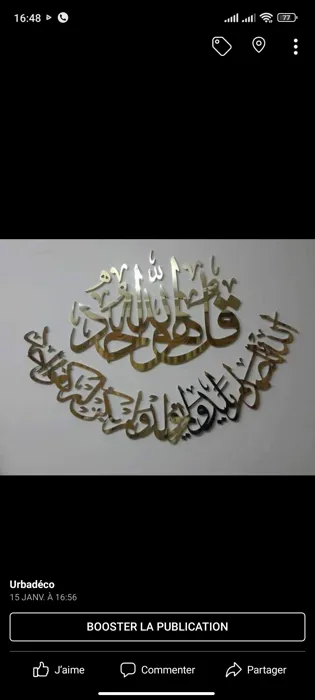 16:48
77
قل هو الله أحد
الله الصمد لم يلد ولم يولد ولم يكن له كفوا أحد
Urbadéco
15 JANV. À 16:56
BOOSTER LA PUBLICATION
J'aime
Commenter
Partager